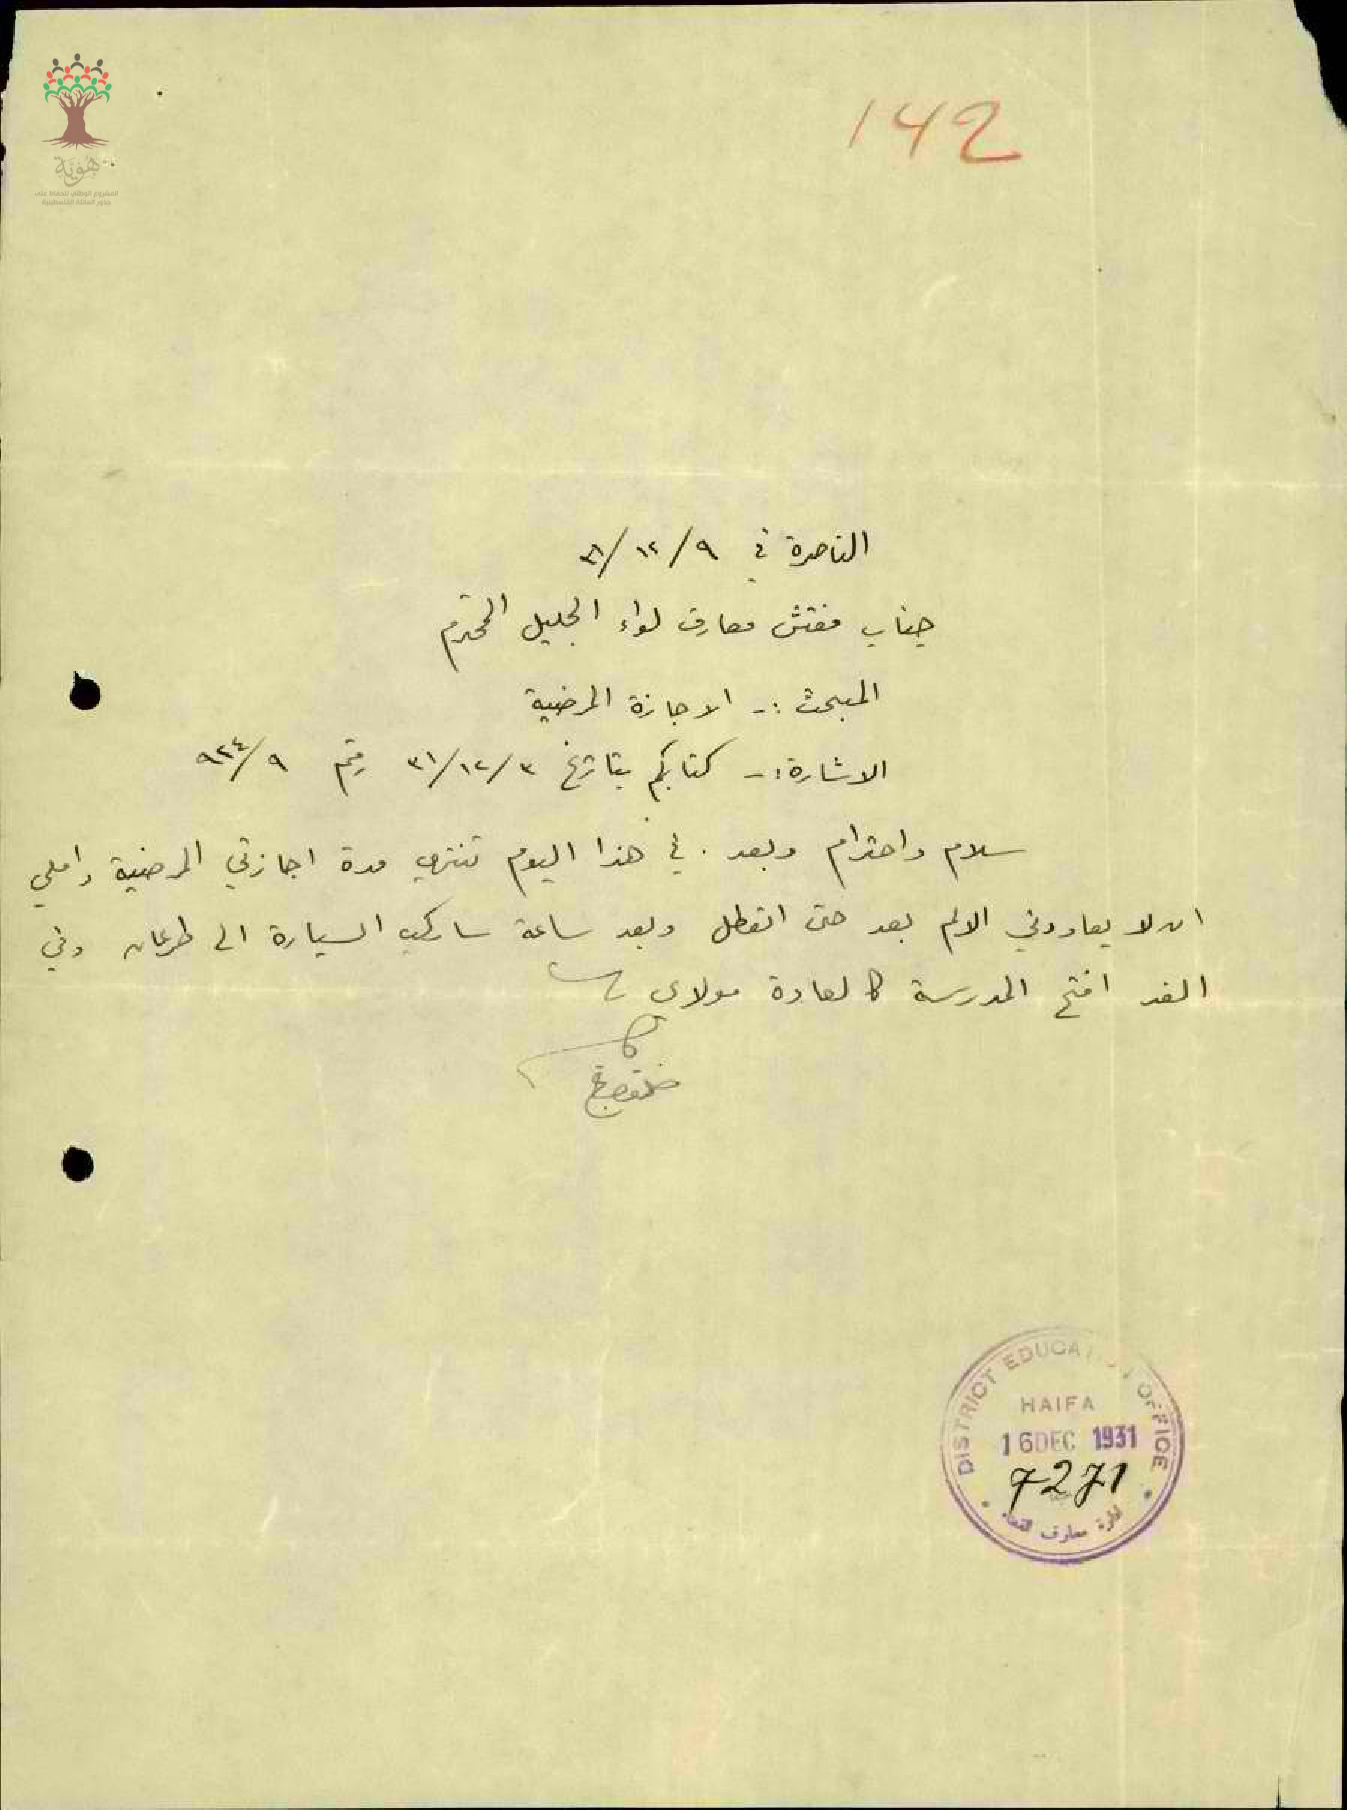 142
هوية
المشروع الوطني للحفاظ على
جذور العائلة الفلسطينية
الناصرة في ٩/١٢/٣١
جناب مفتش معارف لواء الجليل المحترم
المبحث :- الاجازة المرضية
الاشارة :- كتابكم بتاريخ ٣/١٢/٣١ رقم ٩/٩٢٤
سلام واحترام وبعد . في هذا اليوم تنتهي مدة اجازتي المرضية واملي
ان لا يعاودني الالم بعد حتى اتعطل وبعد ساعة ساركب السيارة الى طرعان وفي
الغد افتح المدرسة كالعادة مولاي
DISTRICT EDUCATION OFFICE
HAIFA
16 DEC 1931
7271
ادارة معارف